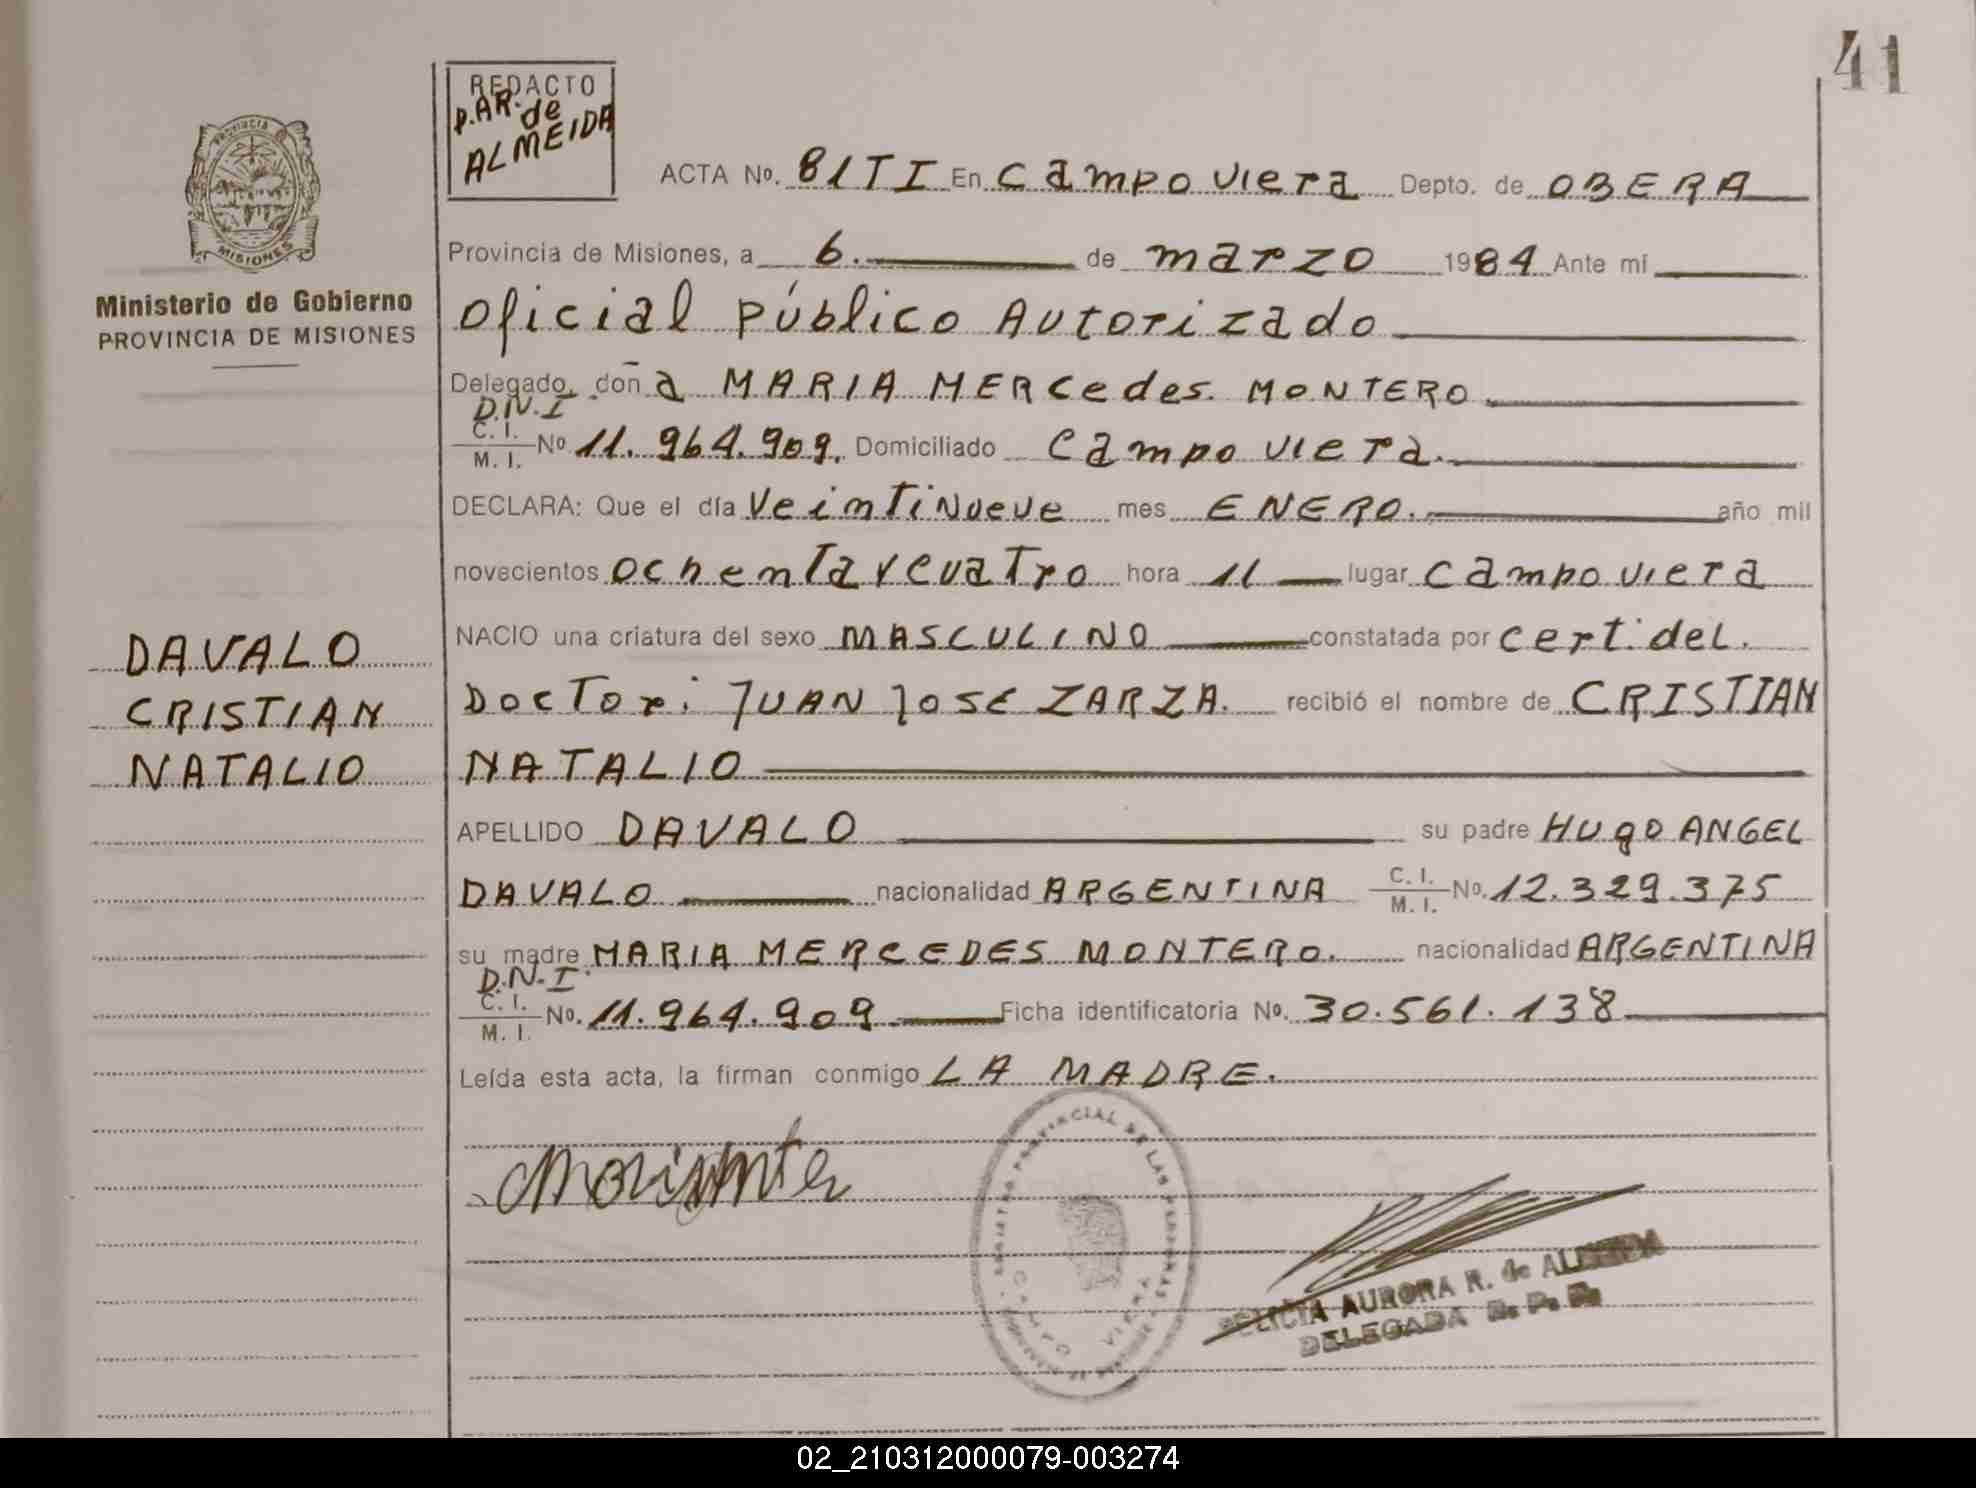 41
REDACTO
P. AR. de
ALMEIDA
PROVINCIA DE
MISIONES
Ministerio de Gobierno
PROVINCIA DE MISIONES
ACTA No. 81TI En Campo Viera Depto. de OBERA
Provincia de Misiones, a 6. de marzo 1984 Ante mi
Oficial Público Autorizado
Delegado, doña MARIA MERCedes. MONTERO
D.N.I.
C. I.
M. I. No 11.964.909. Domiciliado Campo Viera.
DECLARA: Que el día VeintiNueve mes ENERO. año mil
novecientos ochentaycuatro hora 11 lugar Campo Viera
NACIO una criatura del sexo MASCULINO constatada por cert. del.
Doctor: JUAN JOSE ZARZA. recibió el nombre de CRISTIAN
NATALIO
APELLIDO DAVALO su padre HUgO ANGEL
DAVALO nacionalidad ARGENTINA C. I. M. I. No. 12.329.375
su madre MARIA MERCEDES MONTERO. nacionalidad ARGENTINA
D.N.I.
C. I.
M. I. No. 11.964.909 Ficha identificatoria No. 30.561.138
Leída esta acta, la firman conmigo LA MADRE.
DAVALO
CRISTIAN
NATALIO
REGISTRO PROVINCIAL DE LAS PERSONAS
CAMPO VIERA
FELICIA AURORA R. de ALMEIDA
DELEGADA R. P. P.
02_210312000079-003274